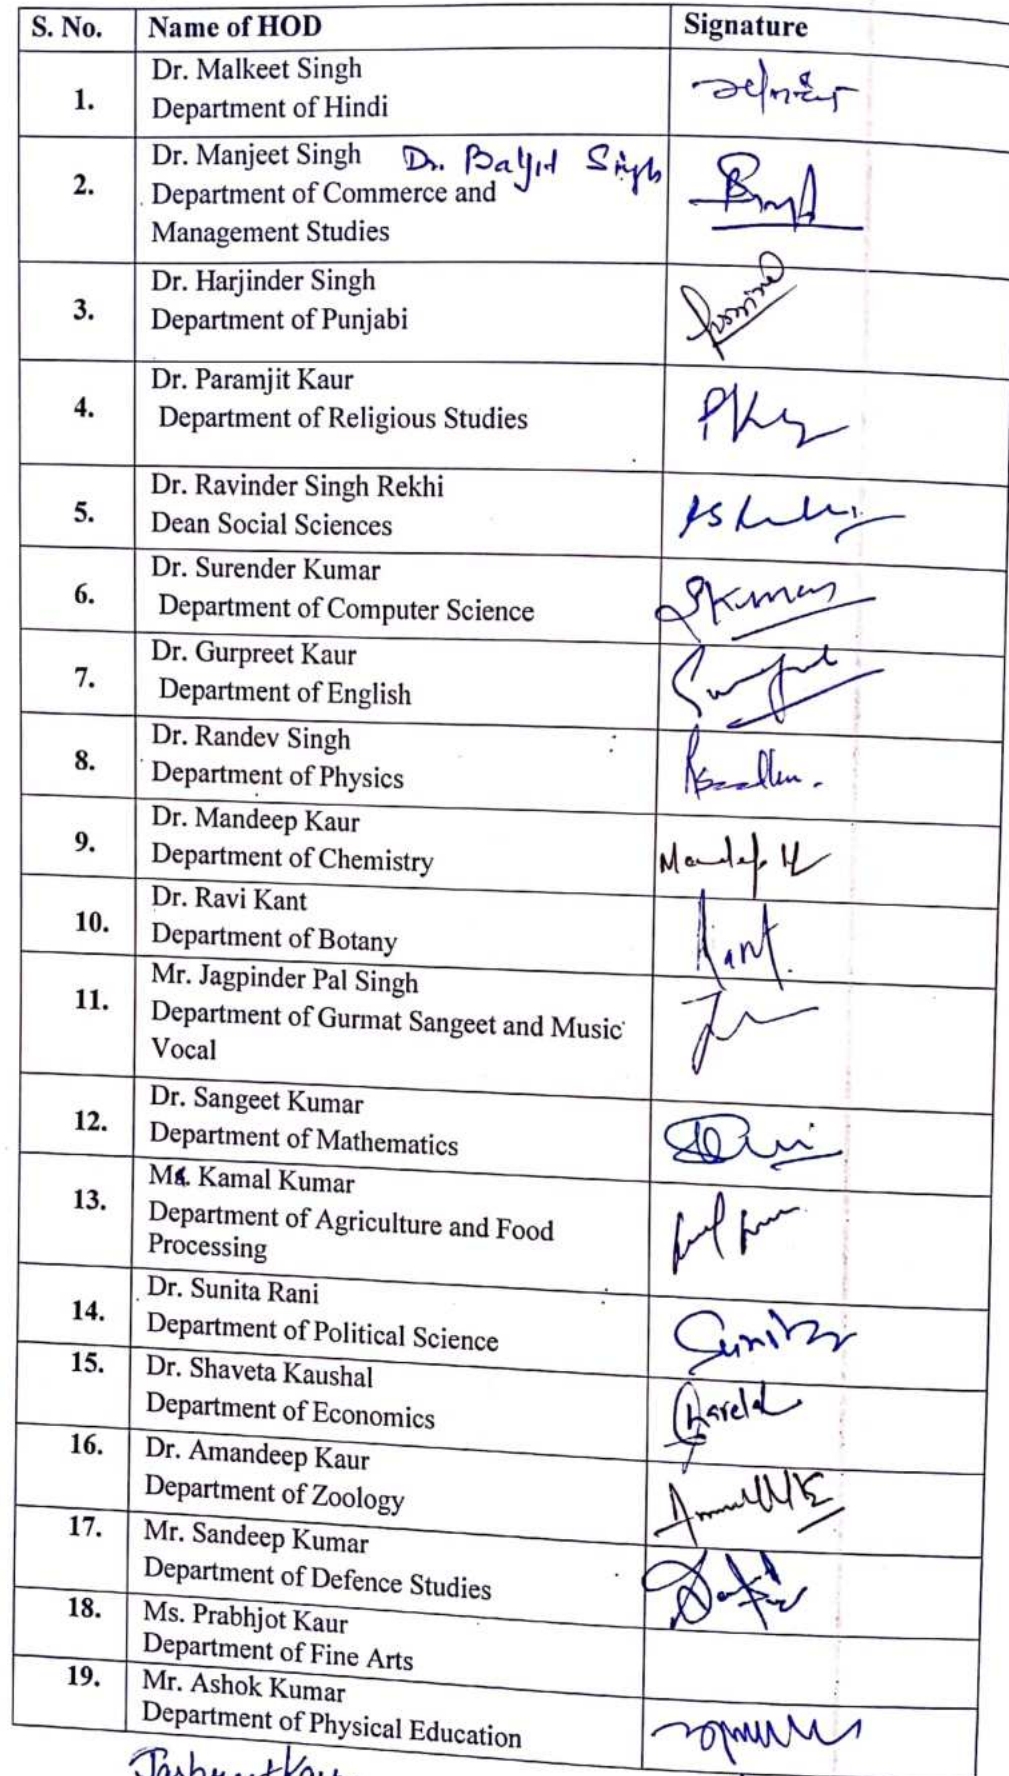 S. No. Name of HOD Signature
1. Dr. Malkeet Singh
Department of Hindi
2. Dr. Manjeet Singh Dr. Baljit Singh
Department of Commerce and
Management Studies
3. Dr. Harjinder Singh
Department of Punjabi
4. Dr. Paramjit Kaur
Department of Religious Studies
5. Dr. Ravinder Singh Rekhi
Dean Social Sciences
6. Dr. Surender Kumar
Department of Computer Science
SKumar
7. Dr. Gurpreet Kaur
Department of English
8. Dr. Randev Singh
Department of Physics
9. Dr. Mandeep Kaur
Department of Chemistry
Mandeep K
10. Dr. Ravi Kant
Department of Botany
Kant.
11. Mr. Jagpinder Pal Singh
Department of Gurmat Sangeet and Music
Vocal
12. Dr. Sangeet Kumar
Department of Mathematics
13. Kamal Kumar
Department of Agriculture and Food
Processing
14. Dr. Sunita Rani
Department of Political Science
Sunita
15. Dr. Shaveta Kaushal
Department of Economics
16. Dr. Amandeep Kaur
Department of Zoology
17. Mr. Sandeep Kumar
Department of Defence Studies
18. Ms. Prabhjot Kaur
Department of Fine Arts
19. Mr. Ashok Kumar
Department of Physical Education